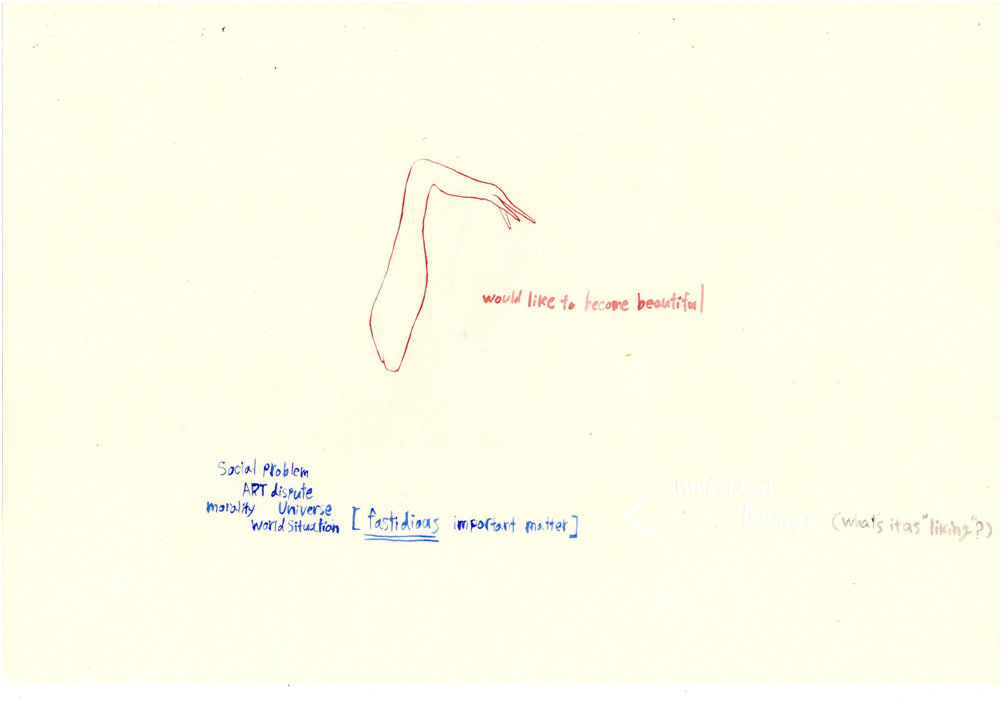 would like to become beautiful
Social problem
ART dispute
morality Universe
world situation [fastidious important matter] <
individual
feelings (what's it as "liking"?)